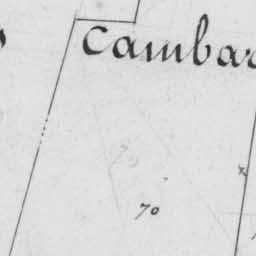 Cambar
70